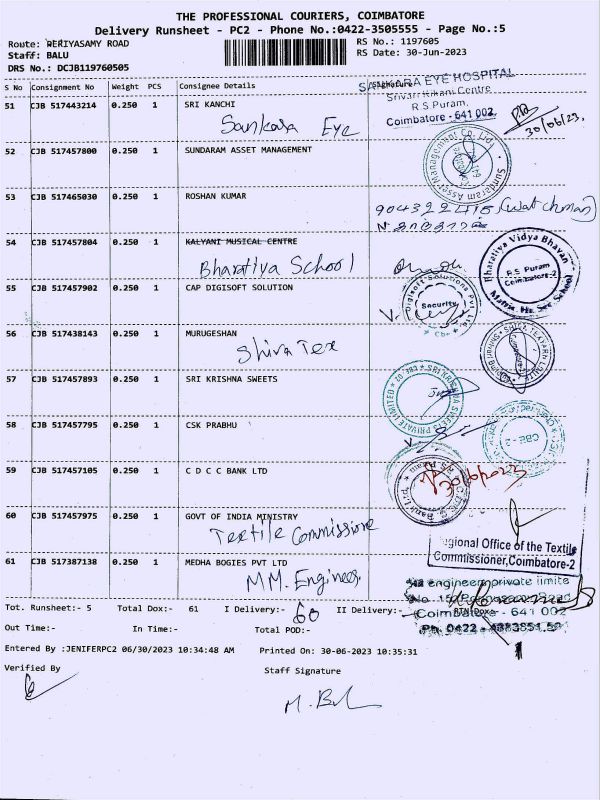 THE PROFESSIONAL COURIERS, COIMBATORE
Delivery Runsheet - PC2 - Phone No.:0422-3505555 - Page No.:5
Route: PERIYASAMY ROAD RS No.: 1197605
Staff: BALU RS Date: 30-Jun-2023
DRS No.: DCJB119760505
S No Consignment No Weight PCS Consignee Details Signature
SANKARA EYE HOSPITAL
51 CJB 517443214 0.250 1 SRI KANCHI
R.S Puram,
Coimbatore - 641 002
Sankara Eye
30/06/23
52 CJB 517457800 0.250 1 SUNDARAM ASSET MANAGEMENT
Sundaram Asset Management Co. Ltd
53 CJB 517465030 0.250 1 ROSHAN KUMAR
(Watchman)
54 CJB 517457804 0.250 1 KALYANI MUSICAL CENTRE
Bharatiya School
Bharatiya Vidya Bhavan
R.S Puram
Coimbatore-2
Matric. Hr. Sec. School
55 CJB 517457902 0.250 1 CAP DIGISOFT SOLUTION
Digisoft Solutions Pvt Ltd
Security
56 CJB 517438143 0.250 1 MURUGESHAN
Shiva Tex
57 CJB 517457893 0.250 1 SRI KRISHNA SWEETS
SRI KRISHNA SWEETS PRIVATE LIMITED * CBE-02 *
58 CJB 517457795 0.250 1 CSK PRABHU
CBE - 2
59 CJB 517457105 0.250 1 C D C C BANK LTD
30/06/2023
60 CJB 517457975 0.250 1 GOVT OF INDIA MINISTRY
Textile Commissione
Regional Office of the Textile
Commissioner, Coimbatore-2
61 CJB 517387138 0.250 1 MEDHA BOGIES PVT LTD
MM. Engineer
Coimbatore - 641 002
Tot. Runsheet:- 5 Total Dox:- 61 I Delivery:- 60 II Delivery:-
Out Time:- In Time:- Total POD:-
Entered By :JENIFERPC2 06/30/2023 10:34:48 AM Printed On: 30-06-2023 10:35:31
Verified By Staff Signature